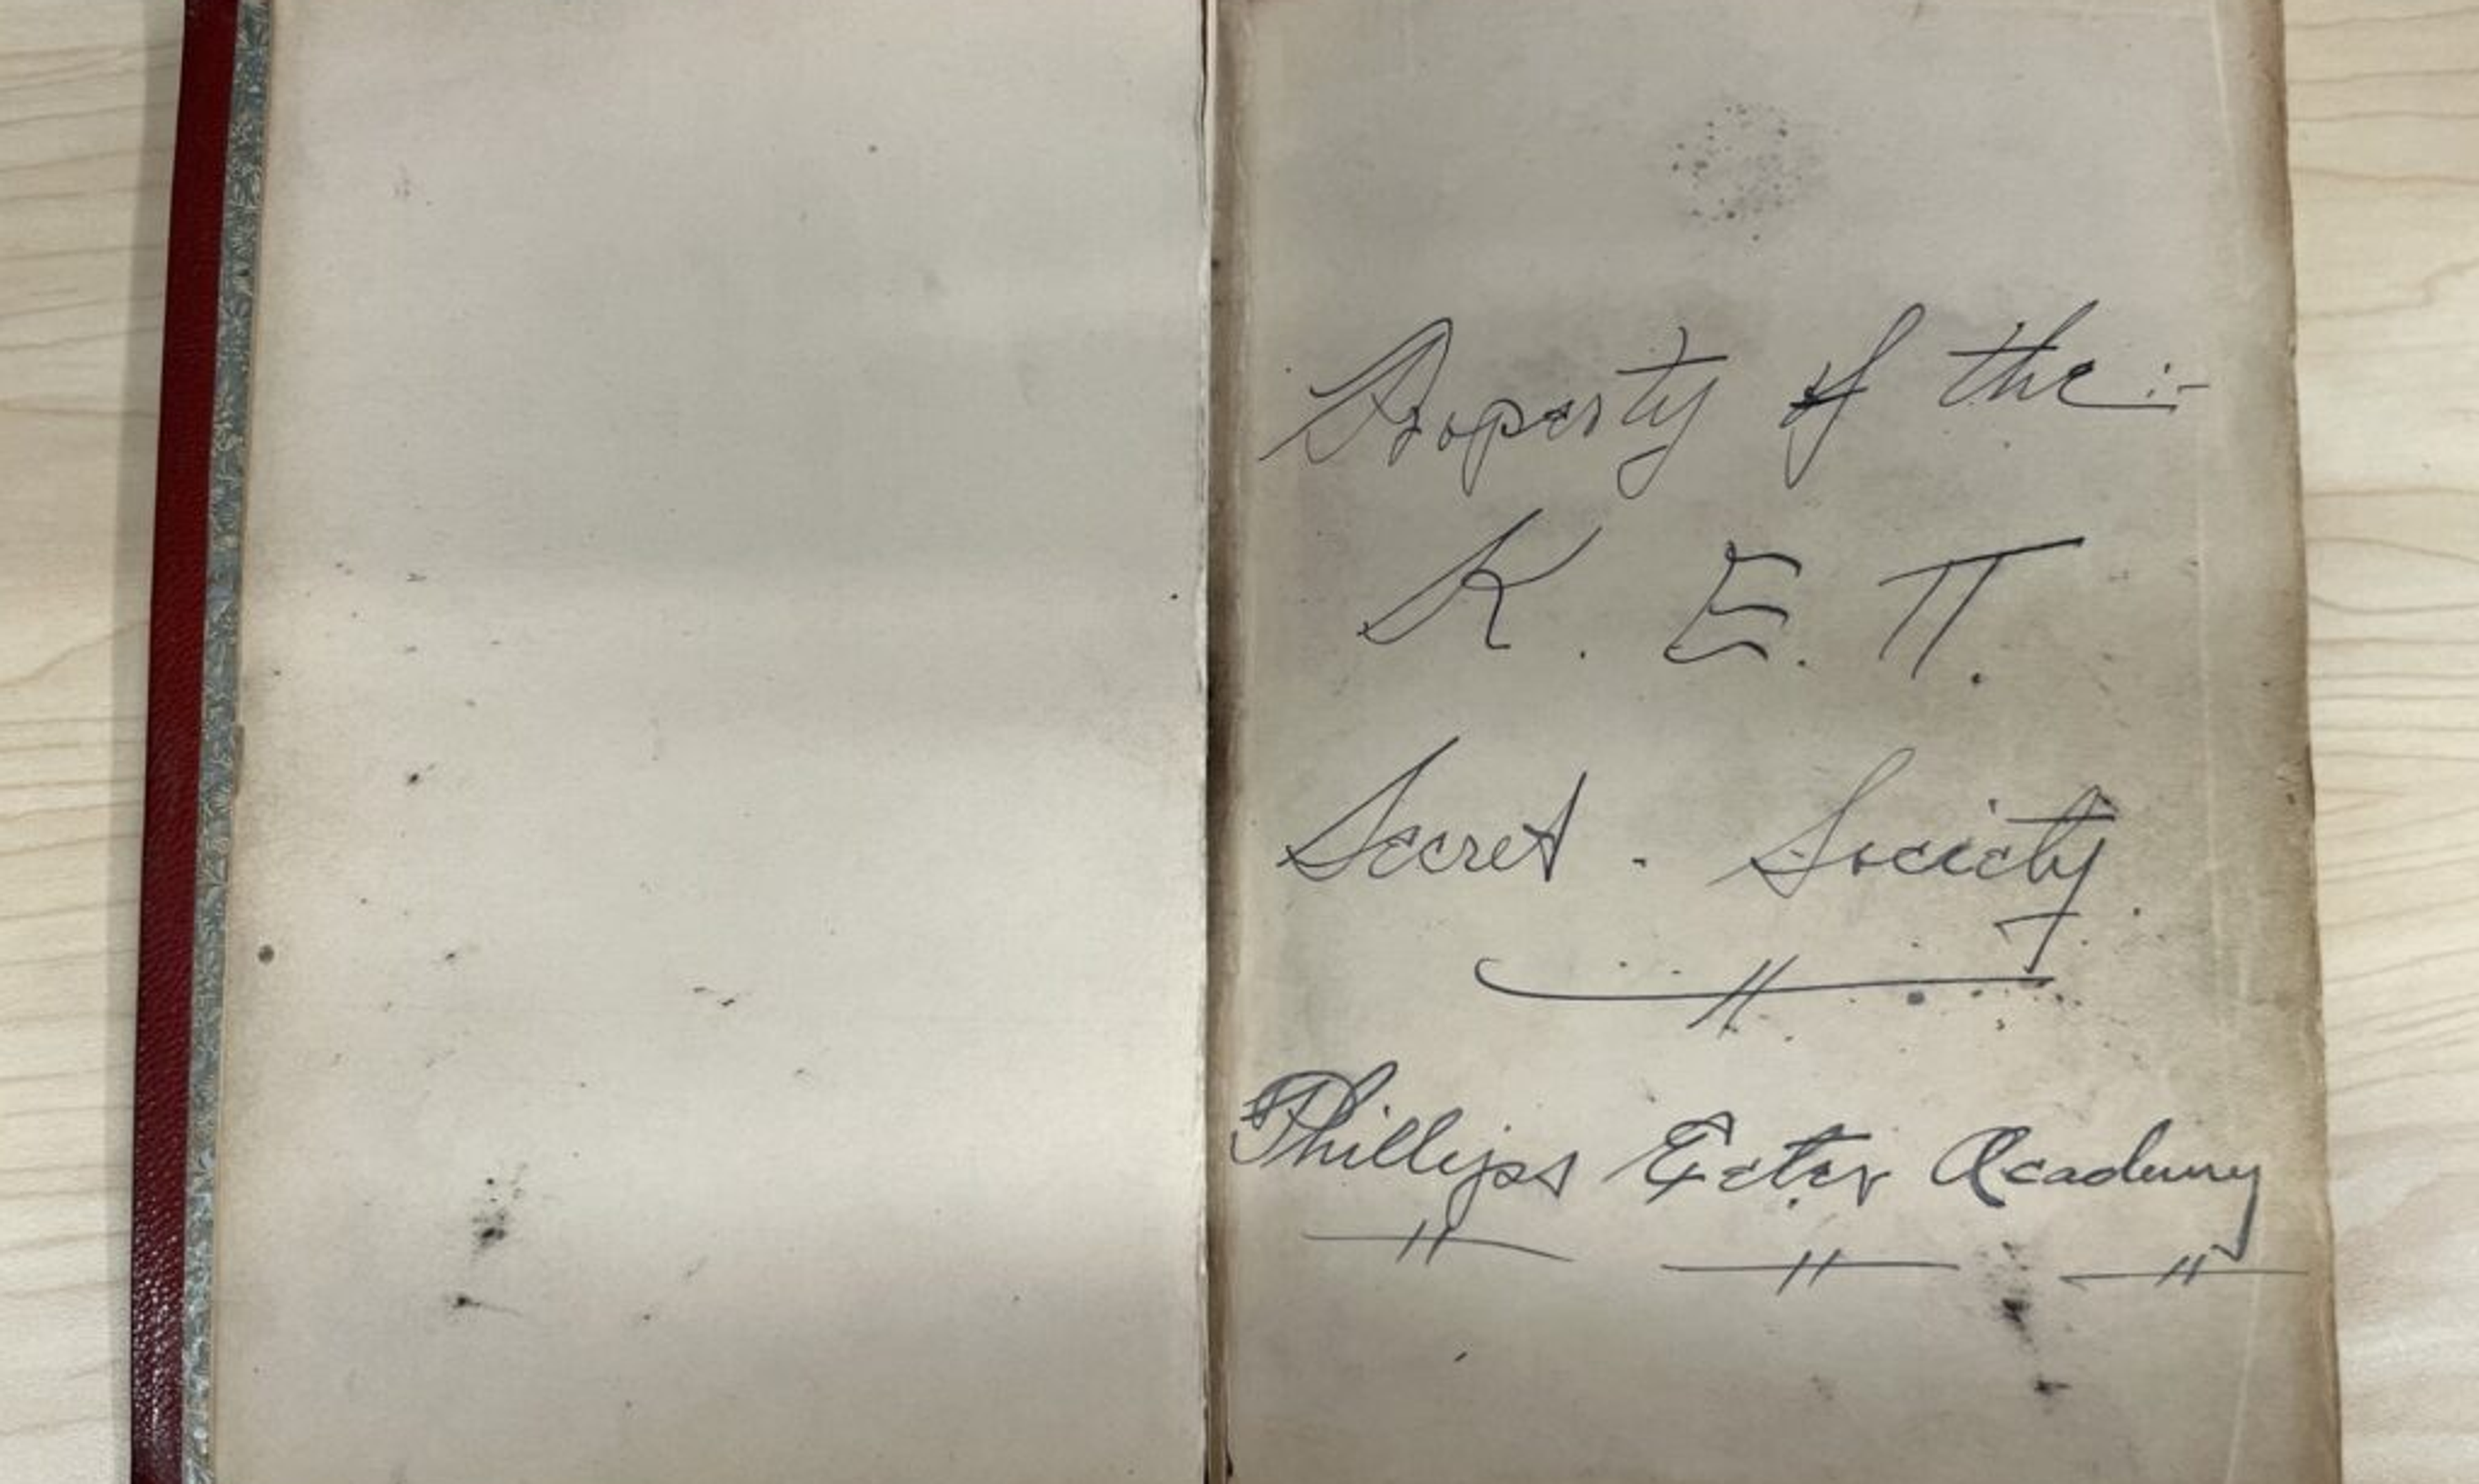 Property of the:-
K. E. Π.
Secret. Society.
Phillips Exeter Academy